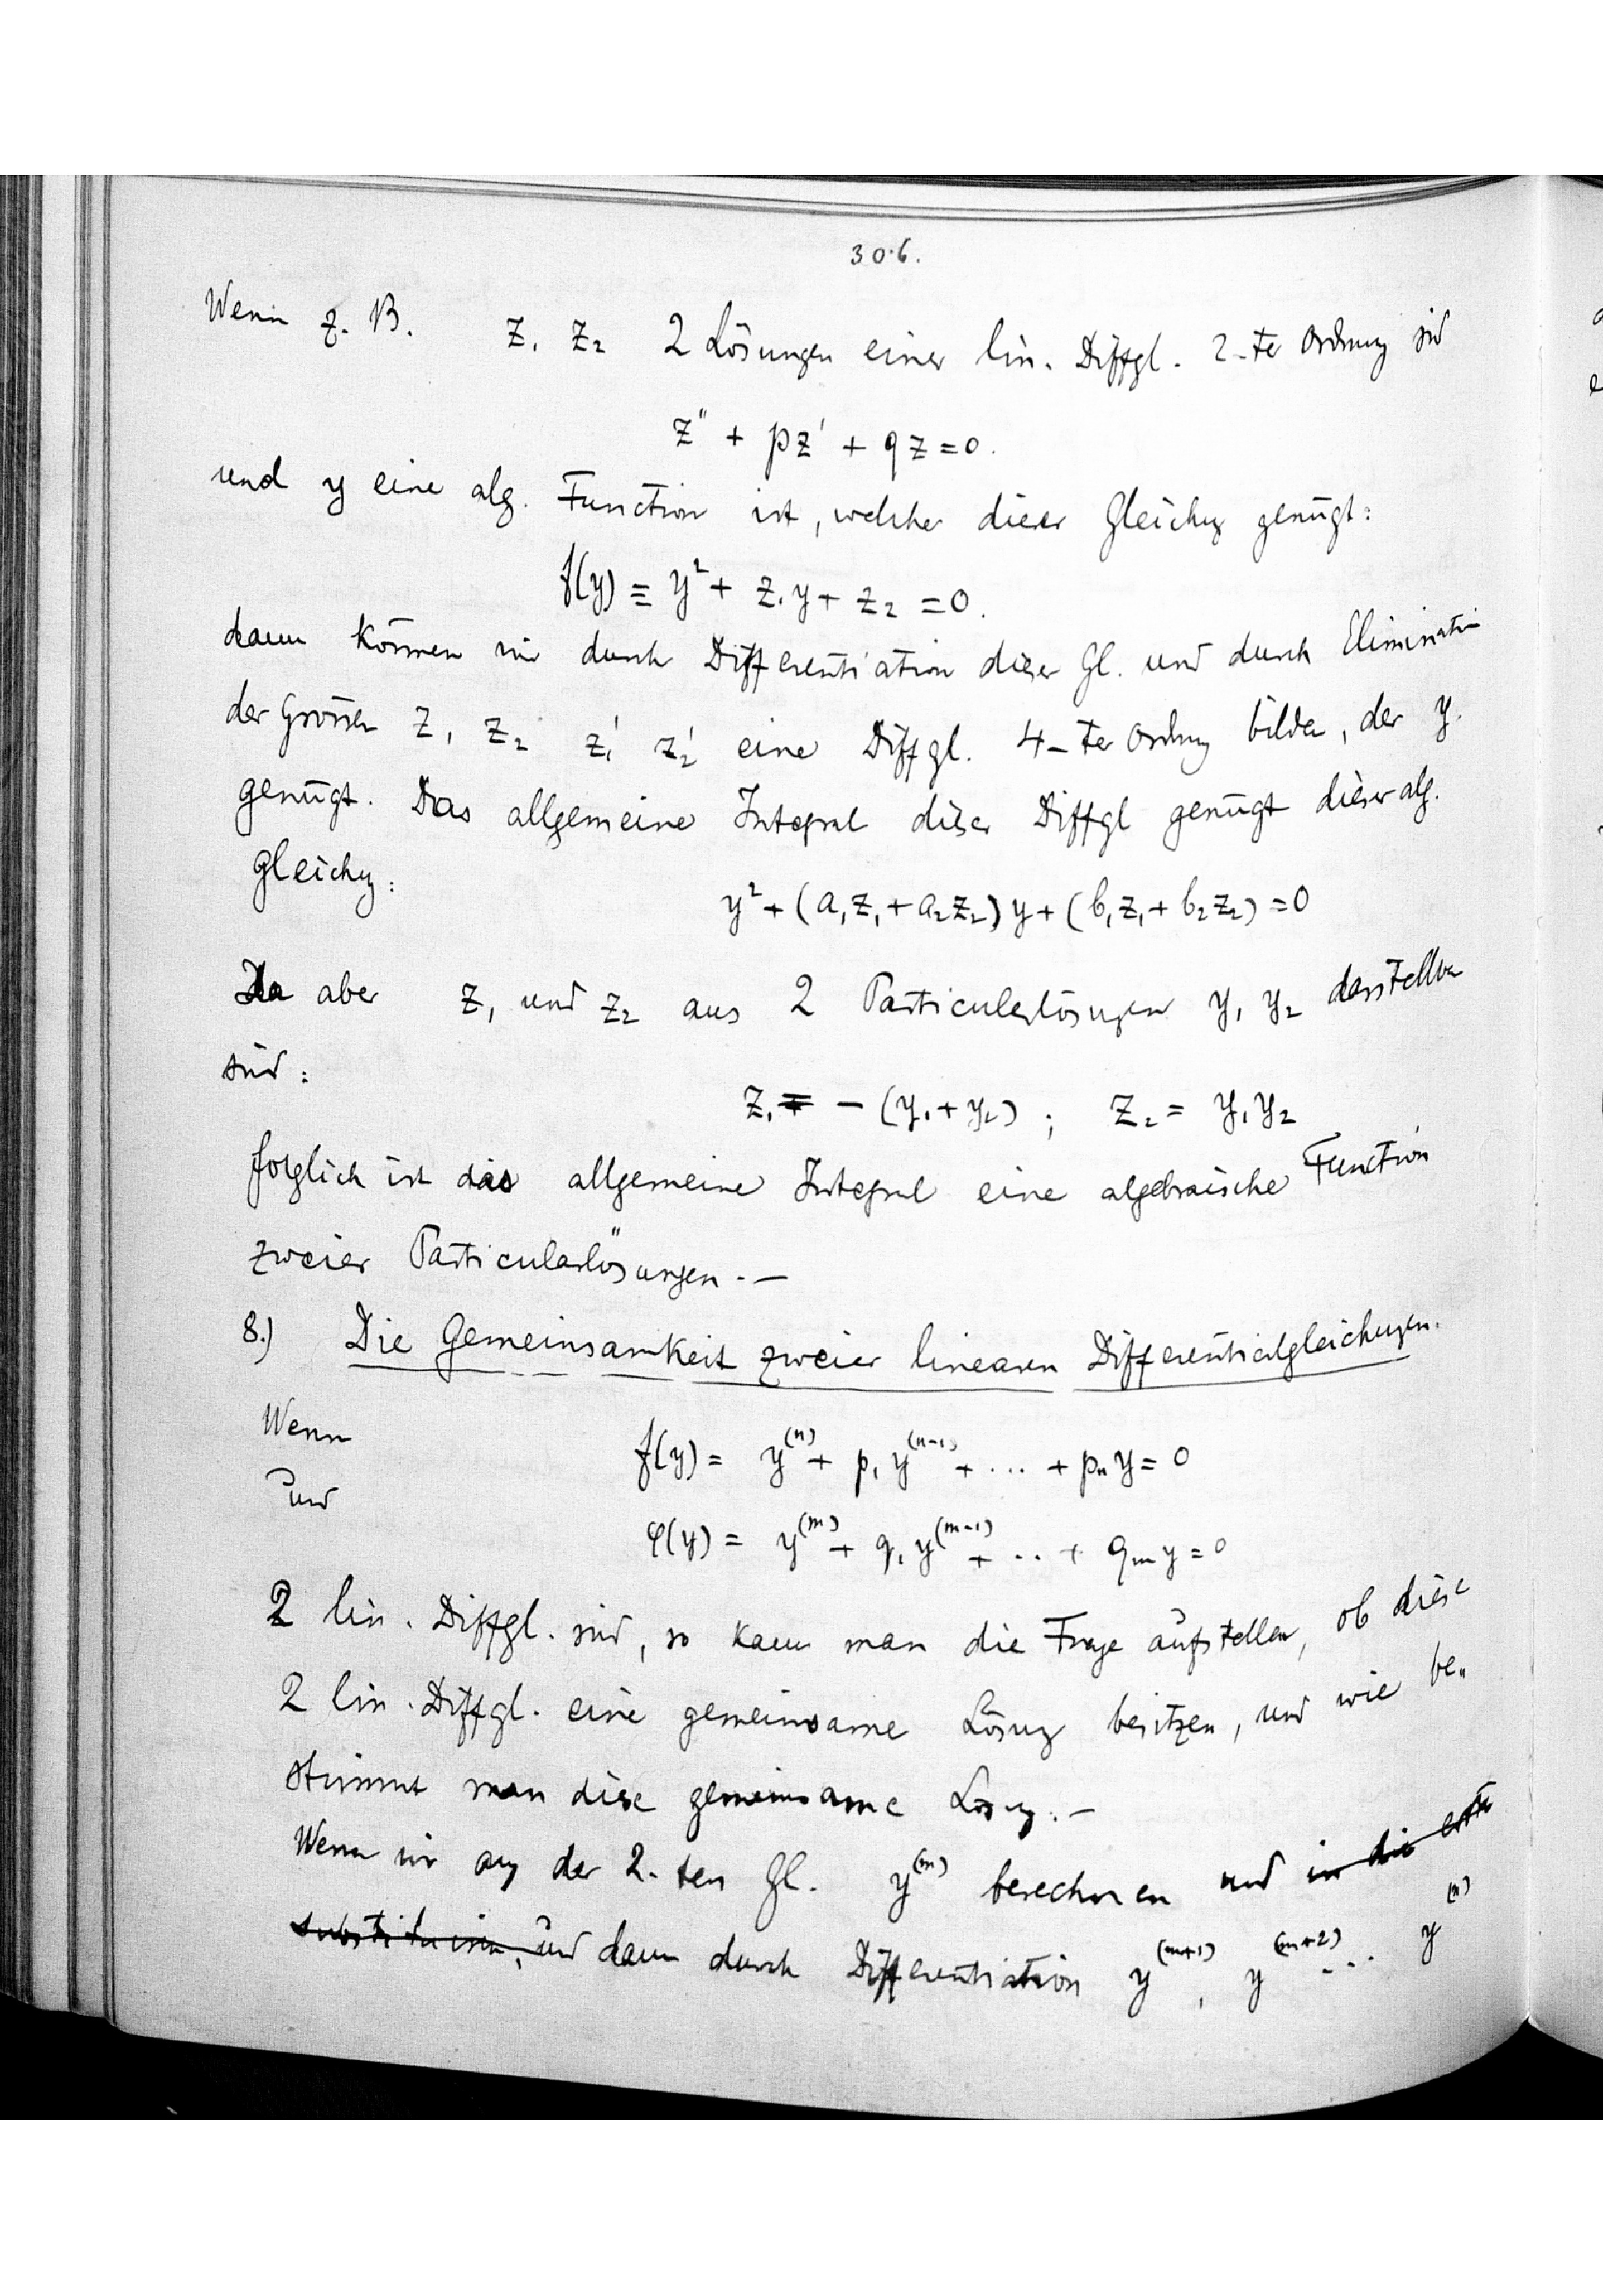 306.
Wenn z. B. z₁ z₂ 2 Lösungen einer lin. Diffgl. 2-ter Ordnung sind
z'' + pz' + qz = 0.
und y eine alg. Function ist, welche dieser Gleichung genügt:
f(y) ≡ y² + z₁y + z₂ = 0.
dann können wir durch Differentiation dieser Gl. und durch Elimination
der Grössen z₁ z₂ z₁' z₂' eine Diffgl. 4-ter Ordnung bilden, der y.
genügt. Das allgemeine Integral dieser Diffgl genügt dieser alg.
Gleichung:
y² + (a₁z₁ + a₂z₂)y + (b₁z₁ + b₂z₂) = 0
Da aber z₁ und z₂ aus 2 Particularlösungen y₁ y₂ darstellbar
sind:
z₁ = - (y₁ + y₂) ; z₂ = y₁y₂
folglich ist das allgemeine Integral eine algebraische Function
zweier Particularlösungen. —
8.) Die Gemeinsamkeit zweier linearen Differentialgleichungen.
Wenn
f(y) = y⁽ⁿ⁾ + p₁y⁽ⁿ⁻¹⁾ + ... + pₙy = 0
und
φ(y) = y⁽ᵐ⁾ + q₁y⁽ᵐ⁻¹⁾ + .. + qₘy = 0
2 lin. Diffgl. sind, so kann man die Frage aufstellen, ob diese
2 lin. Diffgl. eine gemeinsame Lösung besitzen, und wie be„
stimmt man diese gemeinsame Lösung. —
Wenn wir aus der 2-ten Gl. y⁽ᵐ⁾ berechnen und in die erste
substituiren, und dann durch Differentiation y⁽ᵐ⁺¹⁾, y⁽ᵐ⁺²⁾ ... y⁽ⁿ⁾